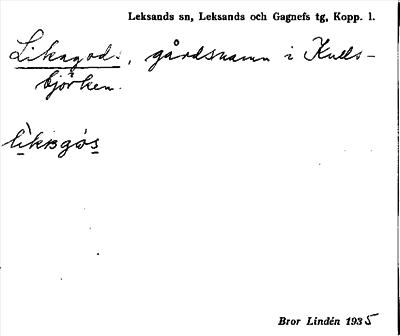 Leksands sn, Leksands och Gagnefs tg, Kopp. l.
Likagods, gårdsnamn i Kulls-
björken.
Bror Lindén 1935